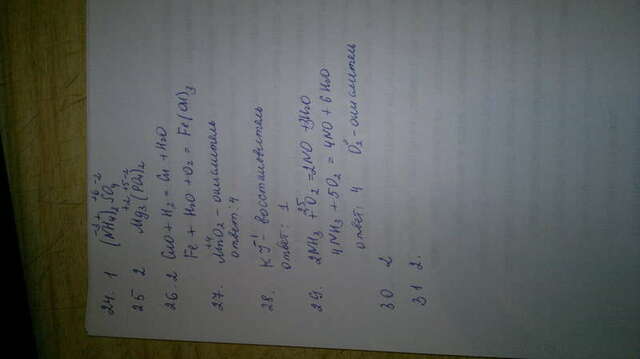 24. 1 (NH4)2SO4 -3 + +6 -2
25 2 Mg3(PO4)2 +2 +5 -2
26 2 CuO + H2 = Cu + H2O
Fe + H2O + O2 = Fe(OH)3
27. MnO2 - окислитель +4
ответ: 4
28. KJ -1 - восстановитель
ответ: 1
29. 2NH3 + 2,5 O2 = 2NO + 3H2O
4NH3 + 5O2 = 4NO + 6H2O
ответ: 4 O2 - окислитель
30 2
31 2.